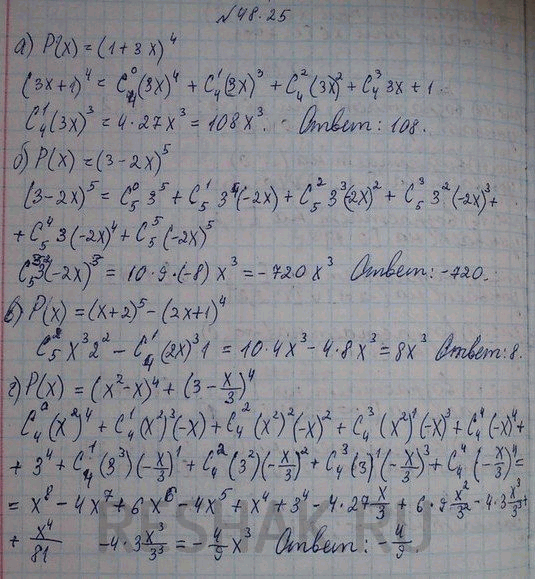 №48.25
а) P(x) = (1+3x)^4
(3x+1)^4 = C_4^0 (3x)^4 + C_4^1 (3x)^3 + C_4^2 (3x)^2 + C_4^3 3x + 1.
C_4^1 (3x)^3 = 4·27x^3 = 108x^3. Ответ: 108.
б) P(x) = (3-2x)^5
(3-2x)^5 = C_5^0 3^5 + C_5^1 3^4 (-2x) + C_5^2 3^3 (-2x)^2 + C_5^3 3^2 (-2x)^3 +
+ C_5^4 3(-2x)^4 + C_5^5 (-2x)^5
C_5^3 3^2 (-2x)^3 = 10·9·(-8) x^3 = -720x^3 Ответ: -720.
в) P(x) = (x+2)^5 - (2x+1)^4
C_5^2 x^3 2^2 - C_4^1 (2x)^3 1 = 10·4x^3 - 4·8x^3 = 8x^3 Ответ: 8.
г) P(x) = (x^2-x)^4 + (3 - x/3)^4
C_4^0 (x^2)^4 + C_4^1 (x^2)^3 (-x) + C_4^2 (x^2)^2 (-x)^2 + C_4^3 (x^2)^1 (-x)^3 + C_4^4 (-x)^4 +
+ 3^4 + C_4^1 (3^3)(-x/3)^1 + C_4^2 (3^2)(-x/3)^2 + C_4^3 (3)^1 (-x/3)^3 + C_4^4 (-x/3)^4 =
= x^8 - 4x^7 + 6x^6 - 4x^5 + x^4 + 3^4 - 4·27 x/3 + 6·9 x^2/3^2 - 4·3 x^3/3^3 +
+ x^4/81 -4·3 x^3/3^3 = -4/9 x^3 Ответ: -4/9
RESHAK.RU